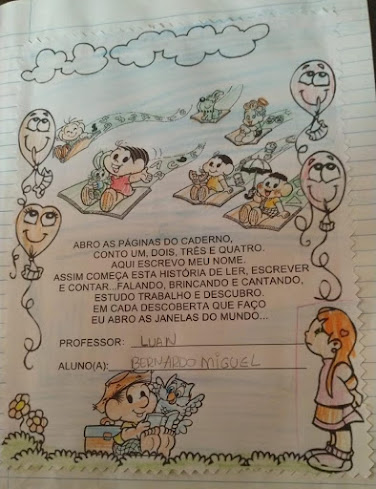 ABRO AS PÁGINAS DO CADERNO,
CONTO UM, DOIS, TRÊS E QUATRO.
AQUI ESCREVO MEU NOME.
ASSIM COMEÇA ESTA HISTÓRIA DE LER, ESCREVER
E CONTAR...FALANDO, BRINCANDO E CANTANDO,
ESTUDO TRABALHO E DESCUBRO.
EM CADA DESCOBERTA QUE FAÇO
EU ABRO AS JANELAS DO MUNDO...
PROFESSOR: LUAN
ALUNO(A): BERNARDO MIGUEL